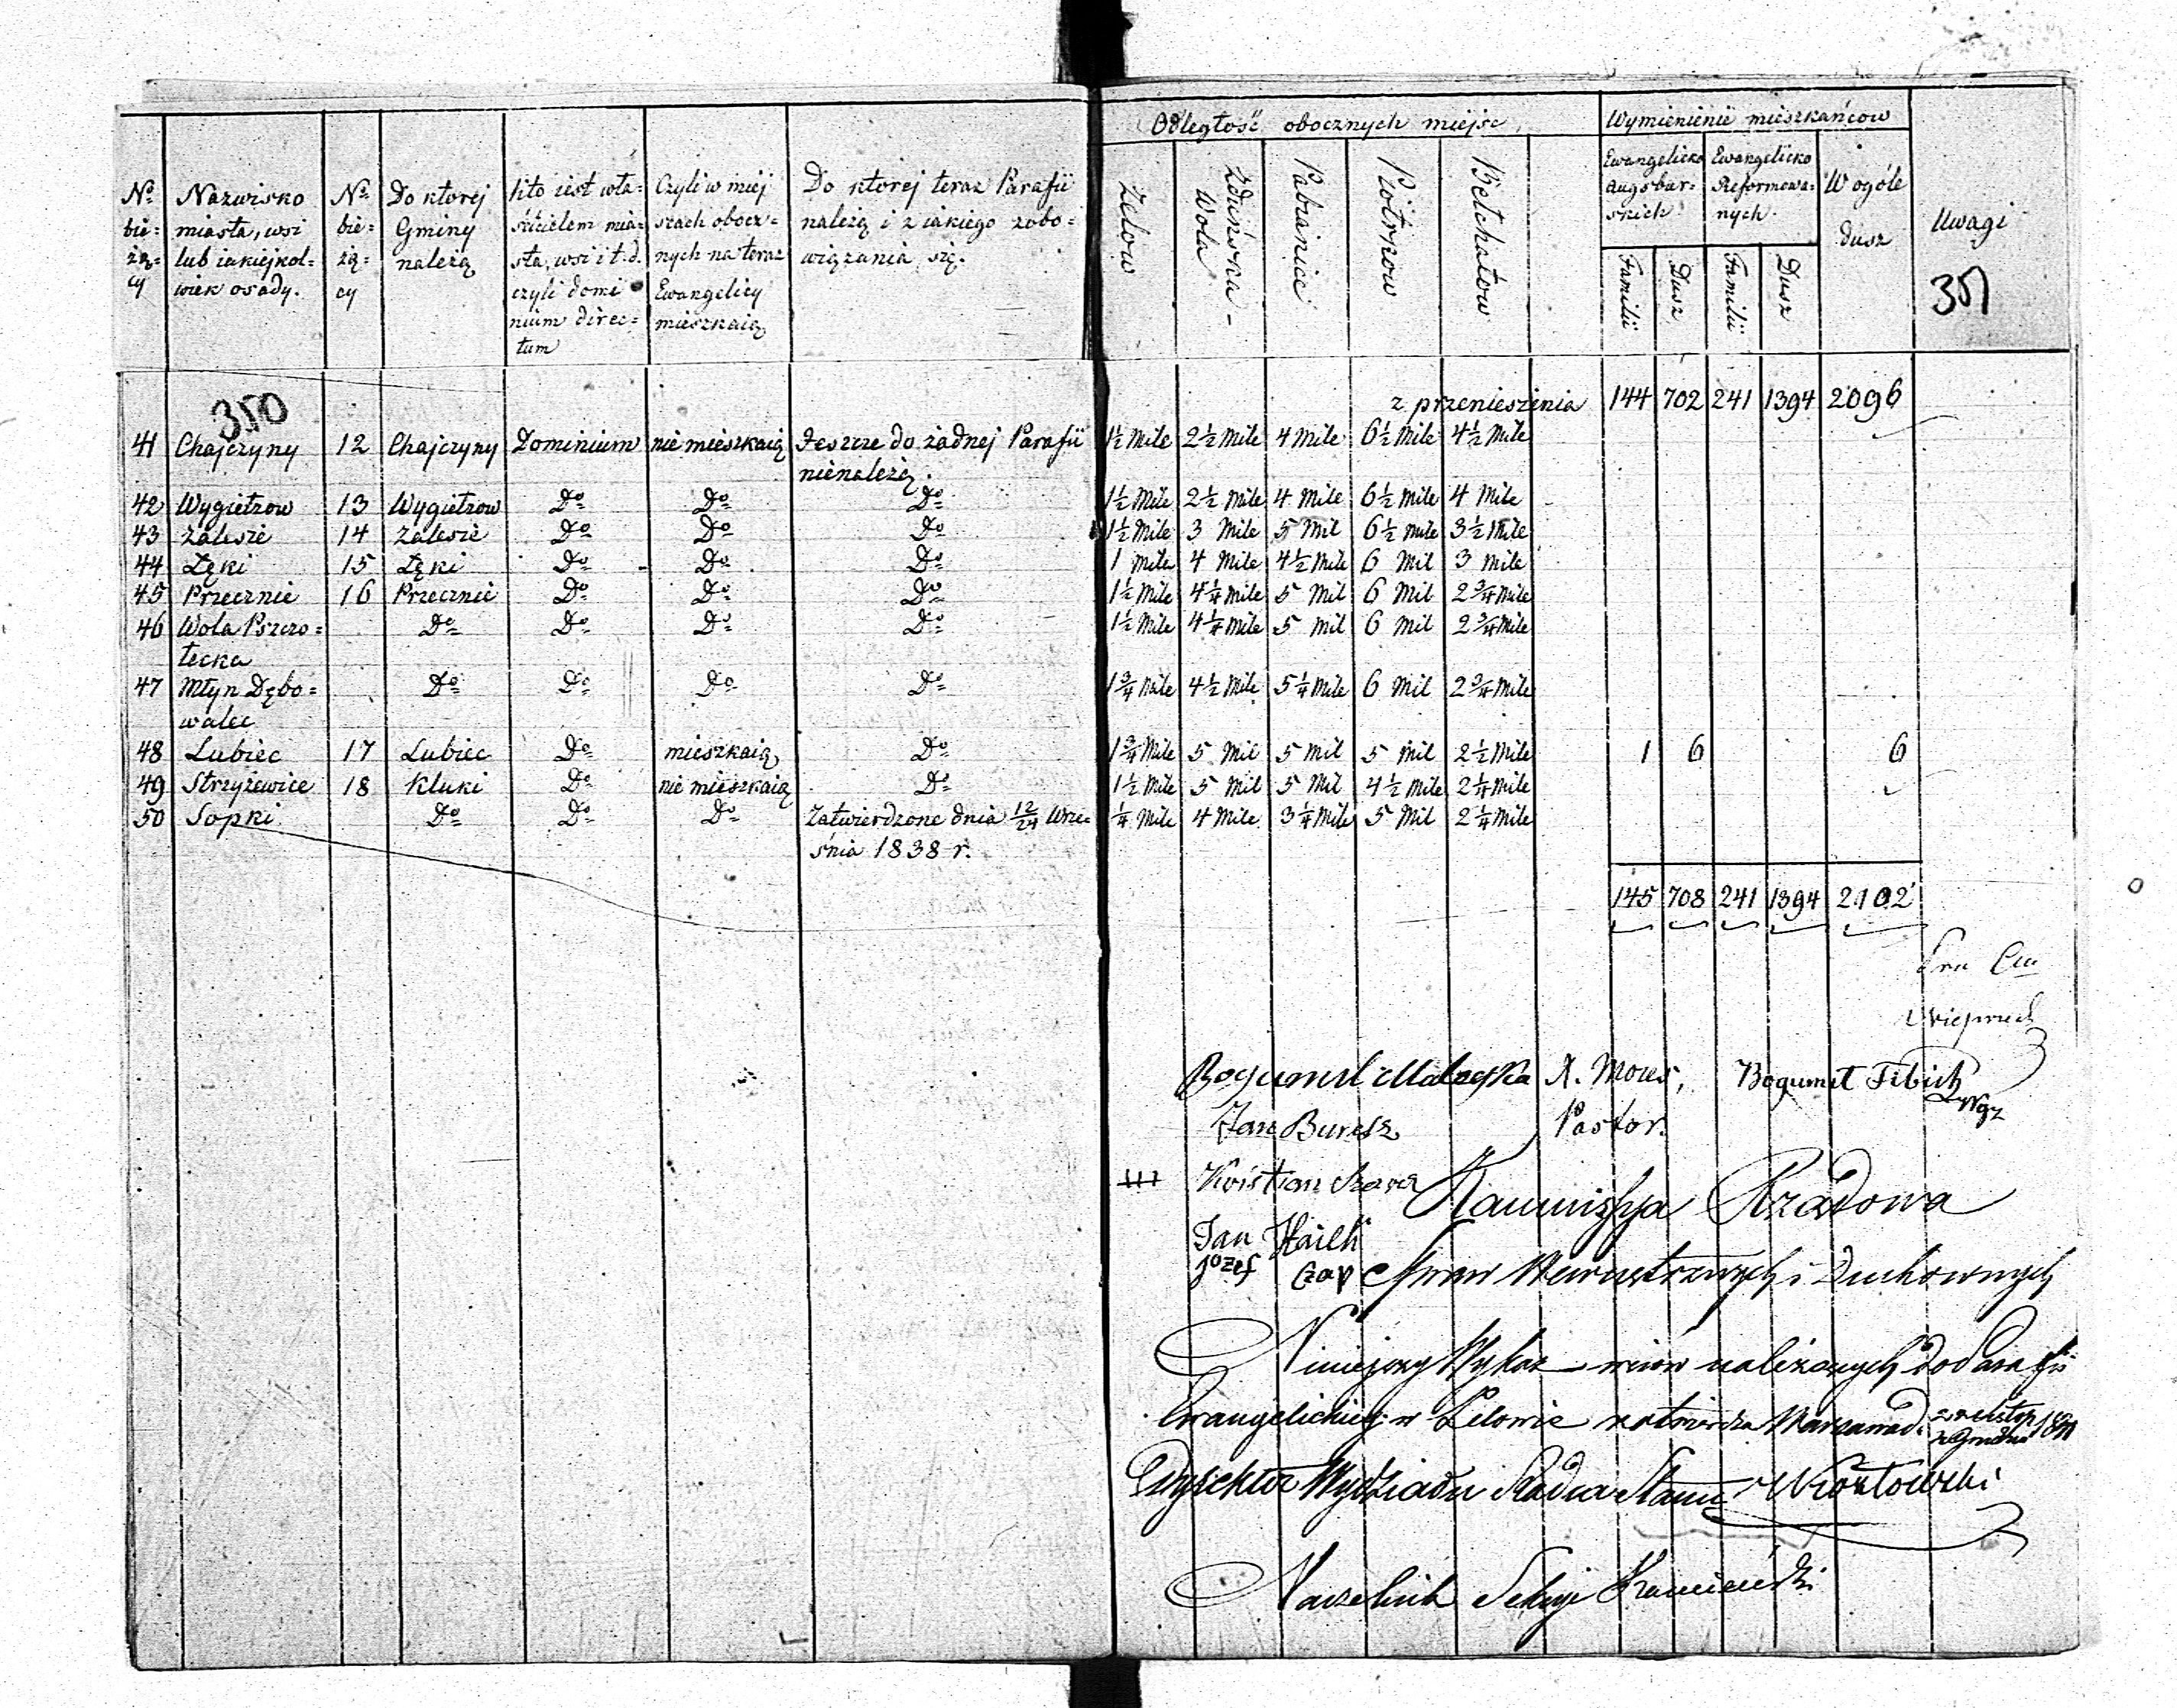 Odległość obocznych miejsc
Wymienienie mieszkańcow
No bie= żą= cy
Nazwisko miasta, wsi lub iakiejkol= wiek osady.
No bie= żą= cy
Do ktorej Gminy należą
Kto iest wła= ścicielem mia= sta, wsi i t. d. czyli domi nium direc= tum
Czyli w miej scach obocz= nych na teraz Ewangelicy mieszkaią
Do ktorej teraz Parafii należą i z iakiego zobo= wiązania się.
Zelow
Zduńska - Wola
Pabianice
Piotrkow
Bełchatow
Ewangelicko augsbur= skich
Ewangelicko Reformowa= nych
W ogóle dusz
Uwagi
Familii
Dusz
Familii
Dusz
351
350
z przeniesienia 144 702 241 1394 2096
41 Chajczyny 12 Chajczyny Dominium nie mieszkaią Jeszcze do żadnej Parafii 1½ Mile 2½ Mile 4 Mile 6½ Mile 4½ Mile
nienależą.
42 Wygiełzow 13 Wygiełzow Do Do Do 1½ Mile 2½ Mile 4 Mile 6½ Mile 4 Mile
43 Zalesie 14 Zalesie Do Do Do 1½ Mile 3 Mile 5 Mil 6½ Mile 3½ Mile
44 Łęki 15 Łęki Do Do Do 1 Mila 4 Mile 4½ Mile 6 Mil 3 Mile
45 Przecznie 16 Przecznie Do Do Do 1½ Mile 4¼ Mile 5 Mil 6 Mil 2¾ Mile
46 Wola Pszczo= Do Do Do Do 1½ Mile 4¼ Mile 5 Mil 6 Mil 2¾ Mile
łecka
47 Młyn Dębo= Do Do Do Do 1¾ Mile 4½ Mile 5¼ Mile 6 Mil 2¾ Mile
walec
48 Lubiec 17 Lubiec Do mieszkaią Do 1¾ Mile 5 Mil 5 Mil 5 Mil 2½ Mile 1 6 6
49 Strzyżewice 18 Kluki Do nie mieszkaią Do 1½ Mile 5 Mil 5 Mil 4½ Mile 2¼ Mile
50 Sopki Do Do Do Zatwierdzone dnia 12/24 Wrze= ¼ Mile 4 Mile 3¼ Mile 5 Mil 2¼ Mile
śnia 1838 r.
145 708 241 1394 2102
Bogumil Matejka A. Moes, Bogumił Fibich
Jan Buresz Pastor.
+++ Kristian
Kommissya Rządowa
Jan
Józef Czap Spraw Wewnętrznych i Duchownych
Niniejszy Wykaz wsiów należących do Parafii
Ewangelickiej w Zelowie zatwierdza Warszawa d.
Dyrektor Wydziału Radca Stanu
Naczelnik Sekcyi